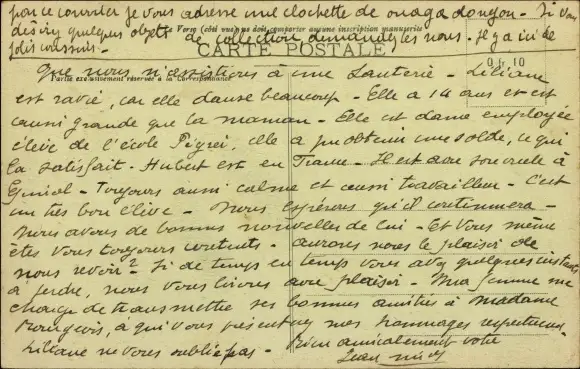 par ce courrier je vous adresse une clochette de ouagadougou - Si vous
désirez quelques objets de collection demandez les nous - Il y a ici de
jolis coussins -
Verso (côté vues doit comporter aucune inscription manuscrite)
CARTE POSTALE
04.10
Que nous n'assistions à une sauterie - Liliane
Partie exclusivement réservée à la Correspondance
est ravie, car elle danse beaucoup - Elle a 14 ans et est
aussi grande que la maman - Elle est dame employée
élève de l'école elle a pu obtenir une solde, ce qui
la satisfait - Hubert est en France - Il est avec son oncle à
Toujours aussi calme et aussi travailleur - C'est
un très bon élève - Nous espérons qu'il continuera -
Nous avons de bonnes nouvelles de lui - Et vous même
êtes vous toujours contents - aurons nous le plaisir de
vous revoir? Si de temps en temps vous avez quelques instants
à perdre, nous vous lirons avec plaisir - Ma femme me
charge de transmettre ses bonnes amitiés à madame
Bourgeois, à qui vous présenterez mes hommages respectueux
Liliane ne vous oublie pas - Bien amicalement votre